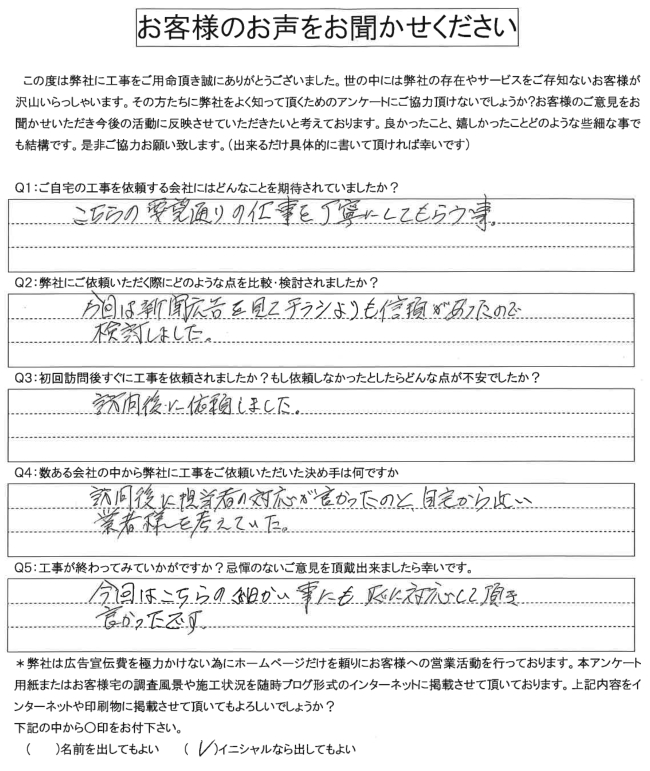 お客様のお声をお聞かせください
この度は弊社に工事をご用命頂き誠にありがとうございました。世の中には弊社の存在やサービスをご存知ないお客様が
沢山いらっしゃいます。その方たちに弊社をよく知って頂くためのアンケートにご協力頂けないでしょうか?お客様のご意見をお
聞かせいただき今後の活動に反映させていただきたいと考えております。良かったこと、嬉しかったことどのような些細な事で
も結構です。是非ご協力お願い致します。(出来るだけ具体的に書いて頂ければ幸いです)
Q1:ご自宅の工事を依頼する会社にはどんなことを期待されていましたか?
こちらの要望通りの仕事を丁寧にしてもらう事。
Q2:弊社にご依頼いただく際にどのような点を比較・検討されましたか?
今回は新聞広告を見てチラシよりも信頼があったので
検討しました。
Q3:初回訪問後すぐに工事を依頼されましたか?もし依頼しなかったとしたらどんな点が不安でしたか?
訪問後に依頼しました。
Q4:数ある会社の中から弊社に工事をご依頼いただいた決め手は何ですか
訪問後に担当者の対応が良かったのと、自宅から近い
業者様を考えていた。
Q5:工事が終わってみていかがですか?忌憚のないご意見を頂戴出来ましたら幸いです。
今回はこちらの細かい事にも 対応して頂き
良かったです。
*弊社は広告宣伝費を極力かけない為にホームページだけを頼りにお客様への営業活動を行っております。本アンケート
用紙またはお客様宅の調査風景や施工状況を随時ブログ形式のインターネットに掲載させて頂いております。上記内容をイ
ンターネットや印刷物に掲載させて頂いてもよろしいでしょうか?
下記の中から○印をお付下さい。
( )名前を出してもよい (✓)イニシャルなら出してもよい